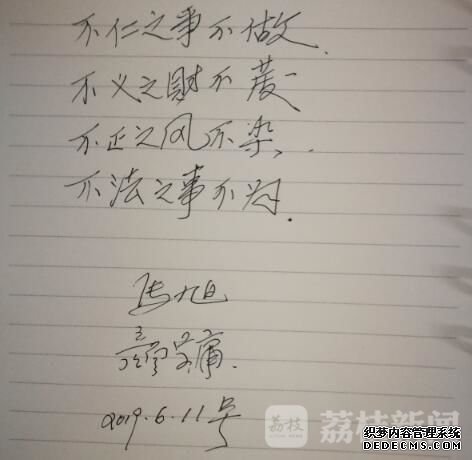 不仁之事不做
不义之财不
不正之风不染、
不法之事不为.
旭
2019.6.11号
荔枝 荔枝新闻
织梦内容管理系统
DEDECMS.COM